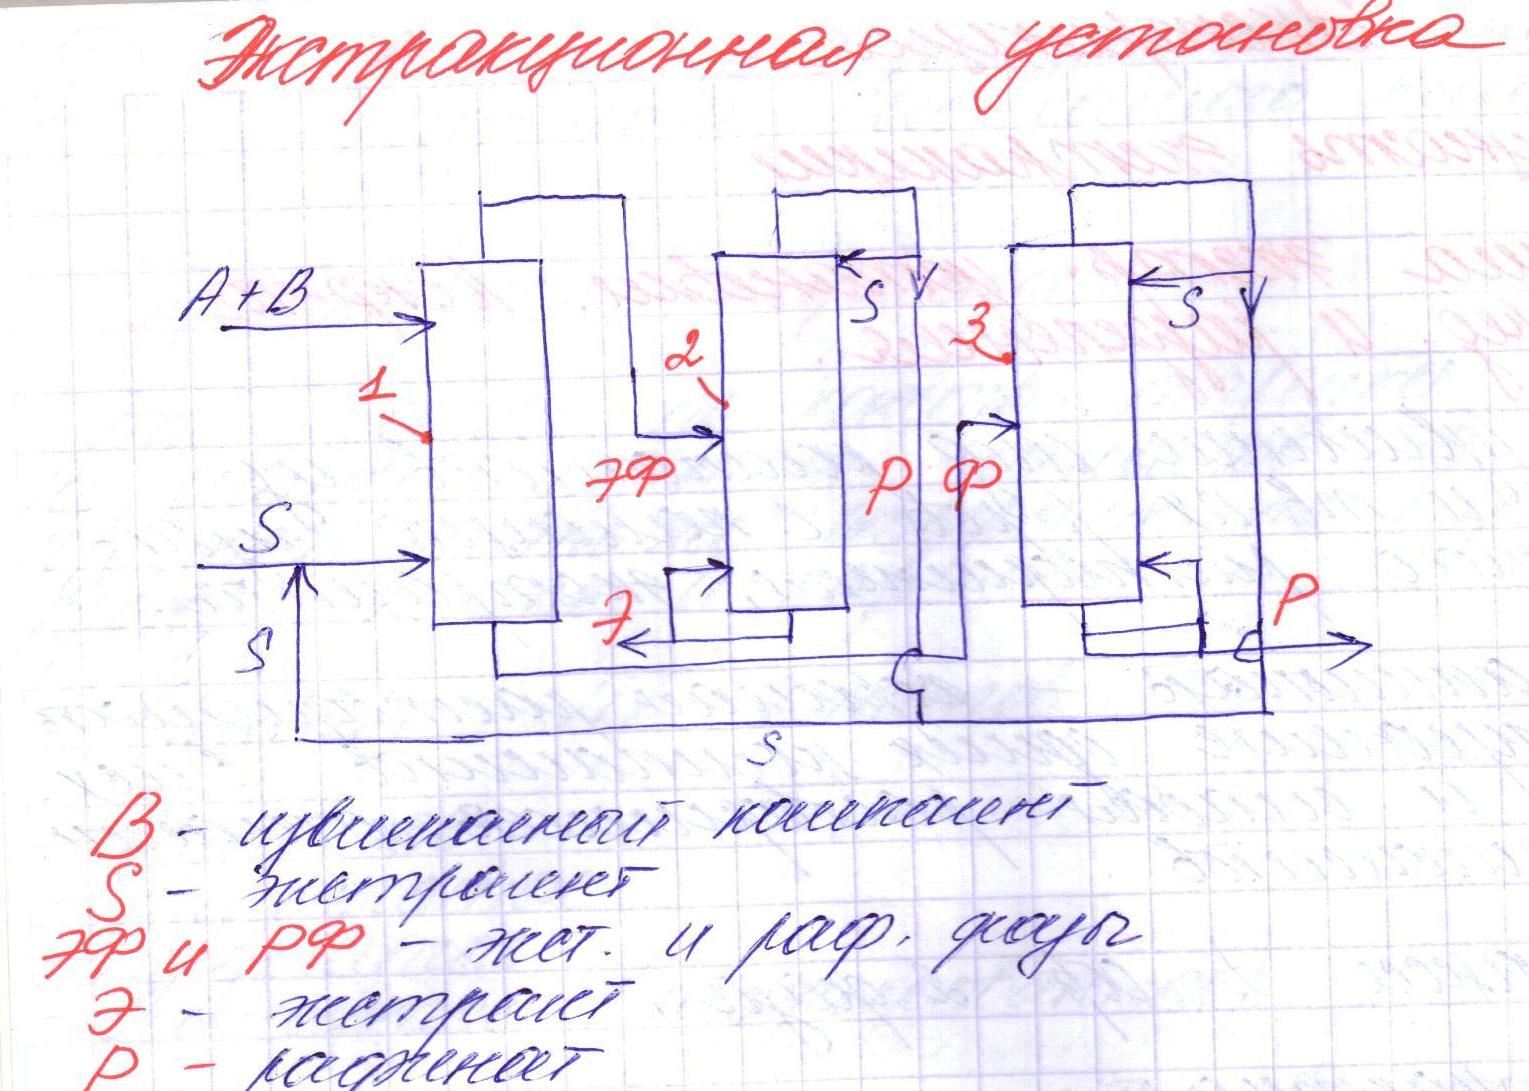 Экстракционная установка
A+B
S
1
2
3
S
ЭФ
Р Ф
S
Э
Р
S
S
В - извлекаемый компонент
S - экстрагент
ЭФ и РФ - экст. и раф. фазы
Э - экстракт
Р - рафинат